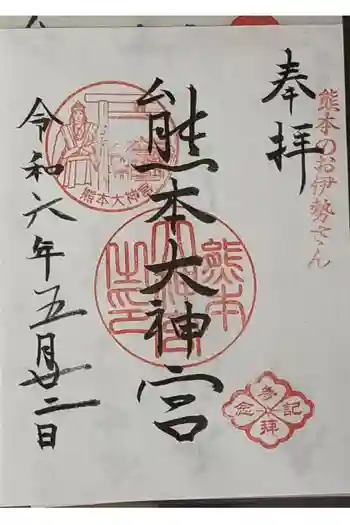 奉拝
熊本のお伊勢さん
熊本大神宮
熊本大神宮
熊本大神宮之印
参拝記念
令和六年五月廿二日